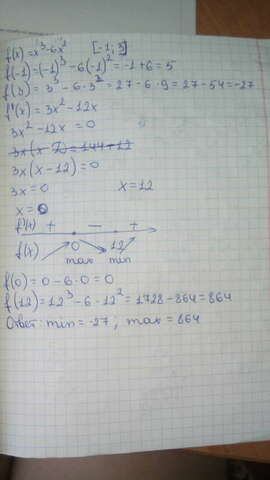 f(x) = x³-6x² [-1; 3]
f(-1) = (-1)³ - 6(-1)² = -1+6 = 5
f(3) = 3³ - 6·3² = 27 - 6·9 = 27 - 54 = -27
f'(x) = 3x² - 12x
3x² - 12x = 0
3x(x-12) = 0
3x = 0 x = 12
x = 0
f'(x) + - +
f(x) 0 12
max min
f(0) = 0 - 6·0 = 0
f(12) = 12³ - 6·12² = 1728 - 864 = 864
Ответ: min = -27; max = 864